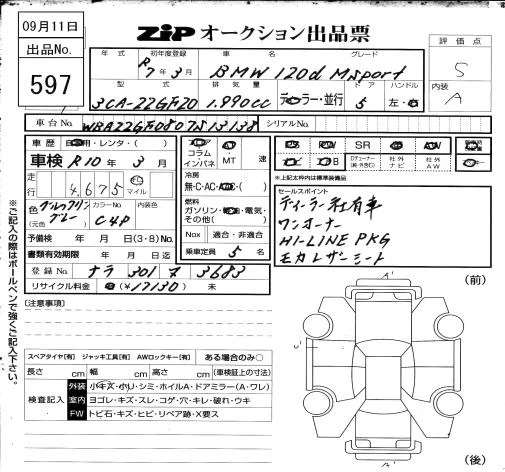 09月11日
出品No.
597
ZIP オークション出品票
評価点
5
内装
A
年式 初年度登録 車名 グレード
R7年3月 BMW 120d Msport
型式 排気量 ドア ハンドル
3CA-22GF20 1.990cc ディーラー・並行 5 左・右
車台No. シリアルNo.
車歴 自家用・レンタ・( )
車検 R10年3月
走行 4,675 km マイル
色 グレー カラーNo. C4P 内装色
(元色)
予備検 年 月 日(3・8)No.
書類有効期限 年 月 日迄
登録No. ナラ 301 ヌ 3683
リサイクル料金 (¥17130) 未
コラム
インパネ
MT 速
冷房
無・C・AC・( )
燃料
ガソリン・軽油・電気・
その他( )
Nox 適合・非適合
乗車定員 5 名
SR AW
Dチューナー
(純・外含む)
社外
ナビ
社外
AW
*上記太枠内は標準装備品
セールスポイント
ディーラー社有車
ワンオーナー
HI-LINE PKG
モカレザーシート
※ご記入の際はボールペンで強くご記入下さい。
(注意事項)
スペアタイヤ[有] ジャッキ工具[有] AWロックキー[有] ある場合のみ○
長さ cm 幅 cm 高さ cm (車検証上の寸法)
検査記入
外装 小キズ・小リ・シミ・ホイルA・ドアミラー(A・ワレ)
室内 ヨゴレ・キズ・スレ・コゲ・穴・キレ・破れ・ウキ
FW トビ石・キズ・ヒビ・リペア跡・X要ス
(前)
A'
U'
A'
(後)